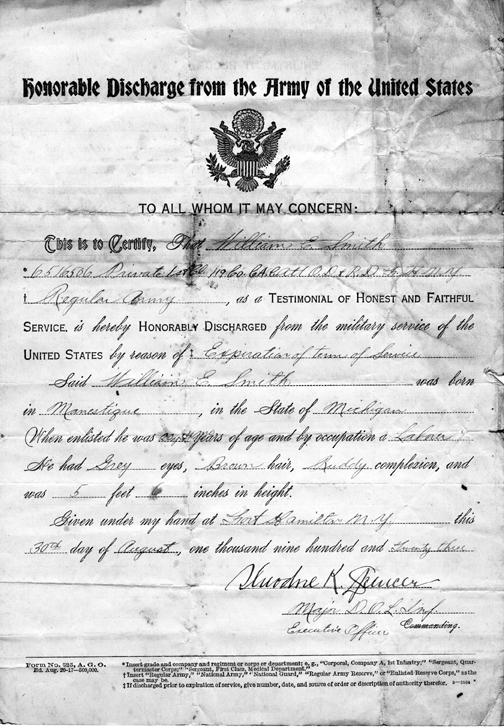 Honorable Discharge from the Army of the United States
TO ALL WHOM IT MAY CONCERN:
This is to Certify, That William E. Smith
* 6516506 Private 119 Co. C.A.
† Regular Army, as a TESTIMONIAL OF HONEST AND FAITHFUL
SERVICE, is hereby HONORABLY DISCHARGED from the military service of the
UNITED STATES by reason of ‡ Expiration of term of Service
Said William E. Smith was born
in Manestique, in the State of Michigan
When enlisted he was years of age and by occupation a Laborer.
He had Grey eyes, Brown hair, Ruddy complexion, and
was 5 feet 6 inches in height.
Given under my hand at Fort Hamilton N.Y this
30th day of August, one thousand nine hundred and twenty three
Theodore K. Spencer
Major D.O.L. Inf.
Executive Officer Commanding.
FORM No. 525, A. G. O.
Ed. Aug. 20-17—500,000.
* Insert grade and company and regiment or corps or department; e. g., "Corporal, Company A, 1st Infantry;" "Sergeant, Quar-
termaster Corps;" "Sergeant, First Class, Medical Department."
† Insert "Regular Army," "National Army," "National Guard," "Regular Army Reserve," or "Enlisted Reserve Corps," as the
case may be.
‡ If discharged prior to expiration of service, give number, date, and source of order or description of authority therefor.